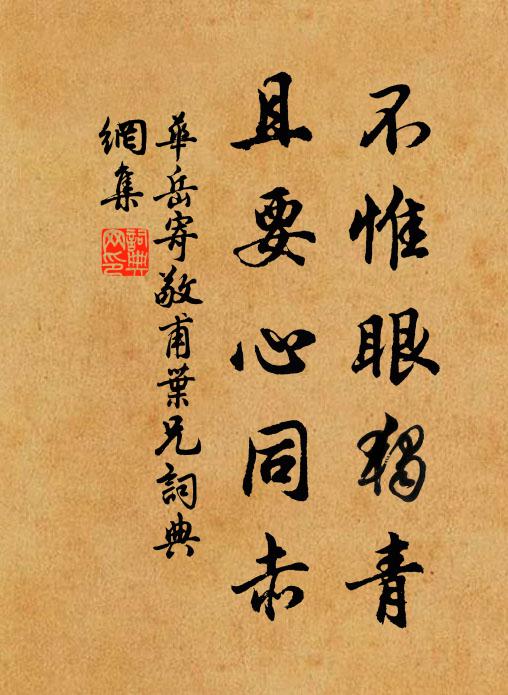 不惟眼獨青
且要心同赤
華岳寄敬甫葉兄詞典
網集
詞典
网印